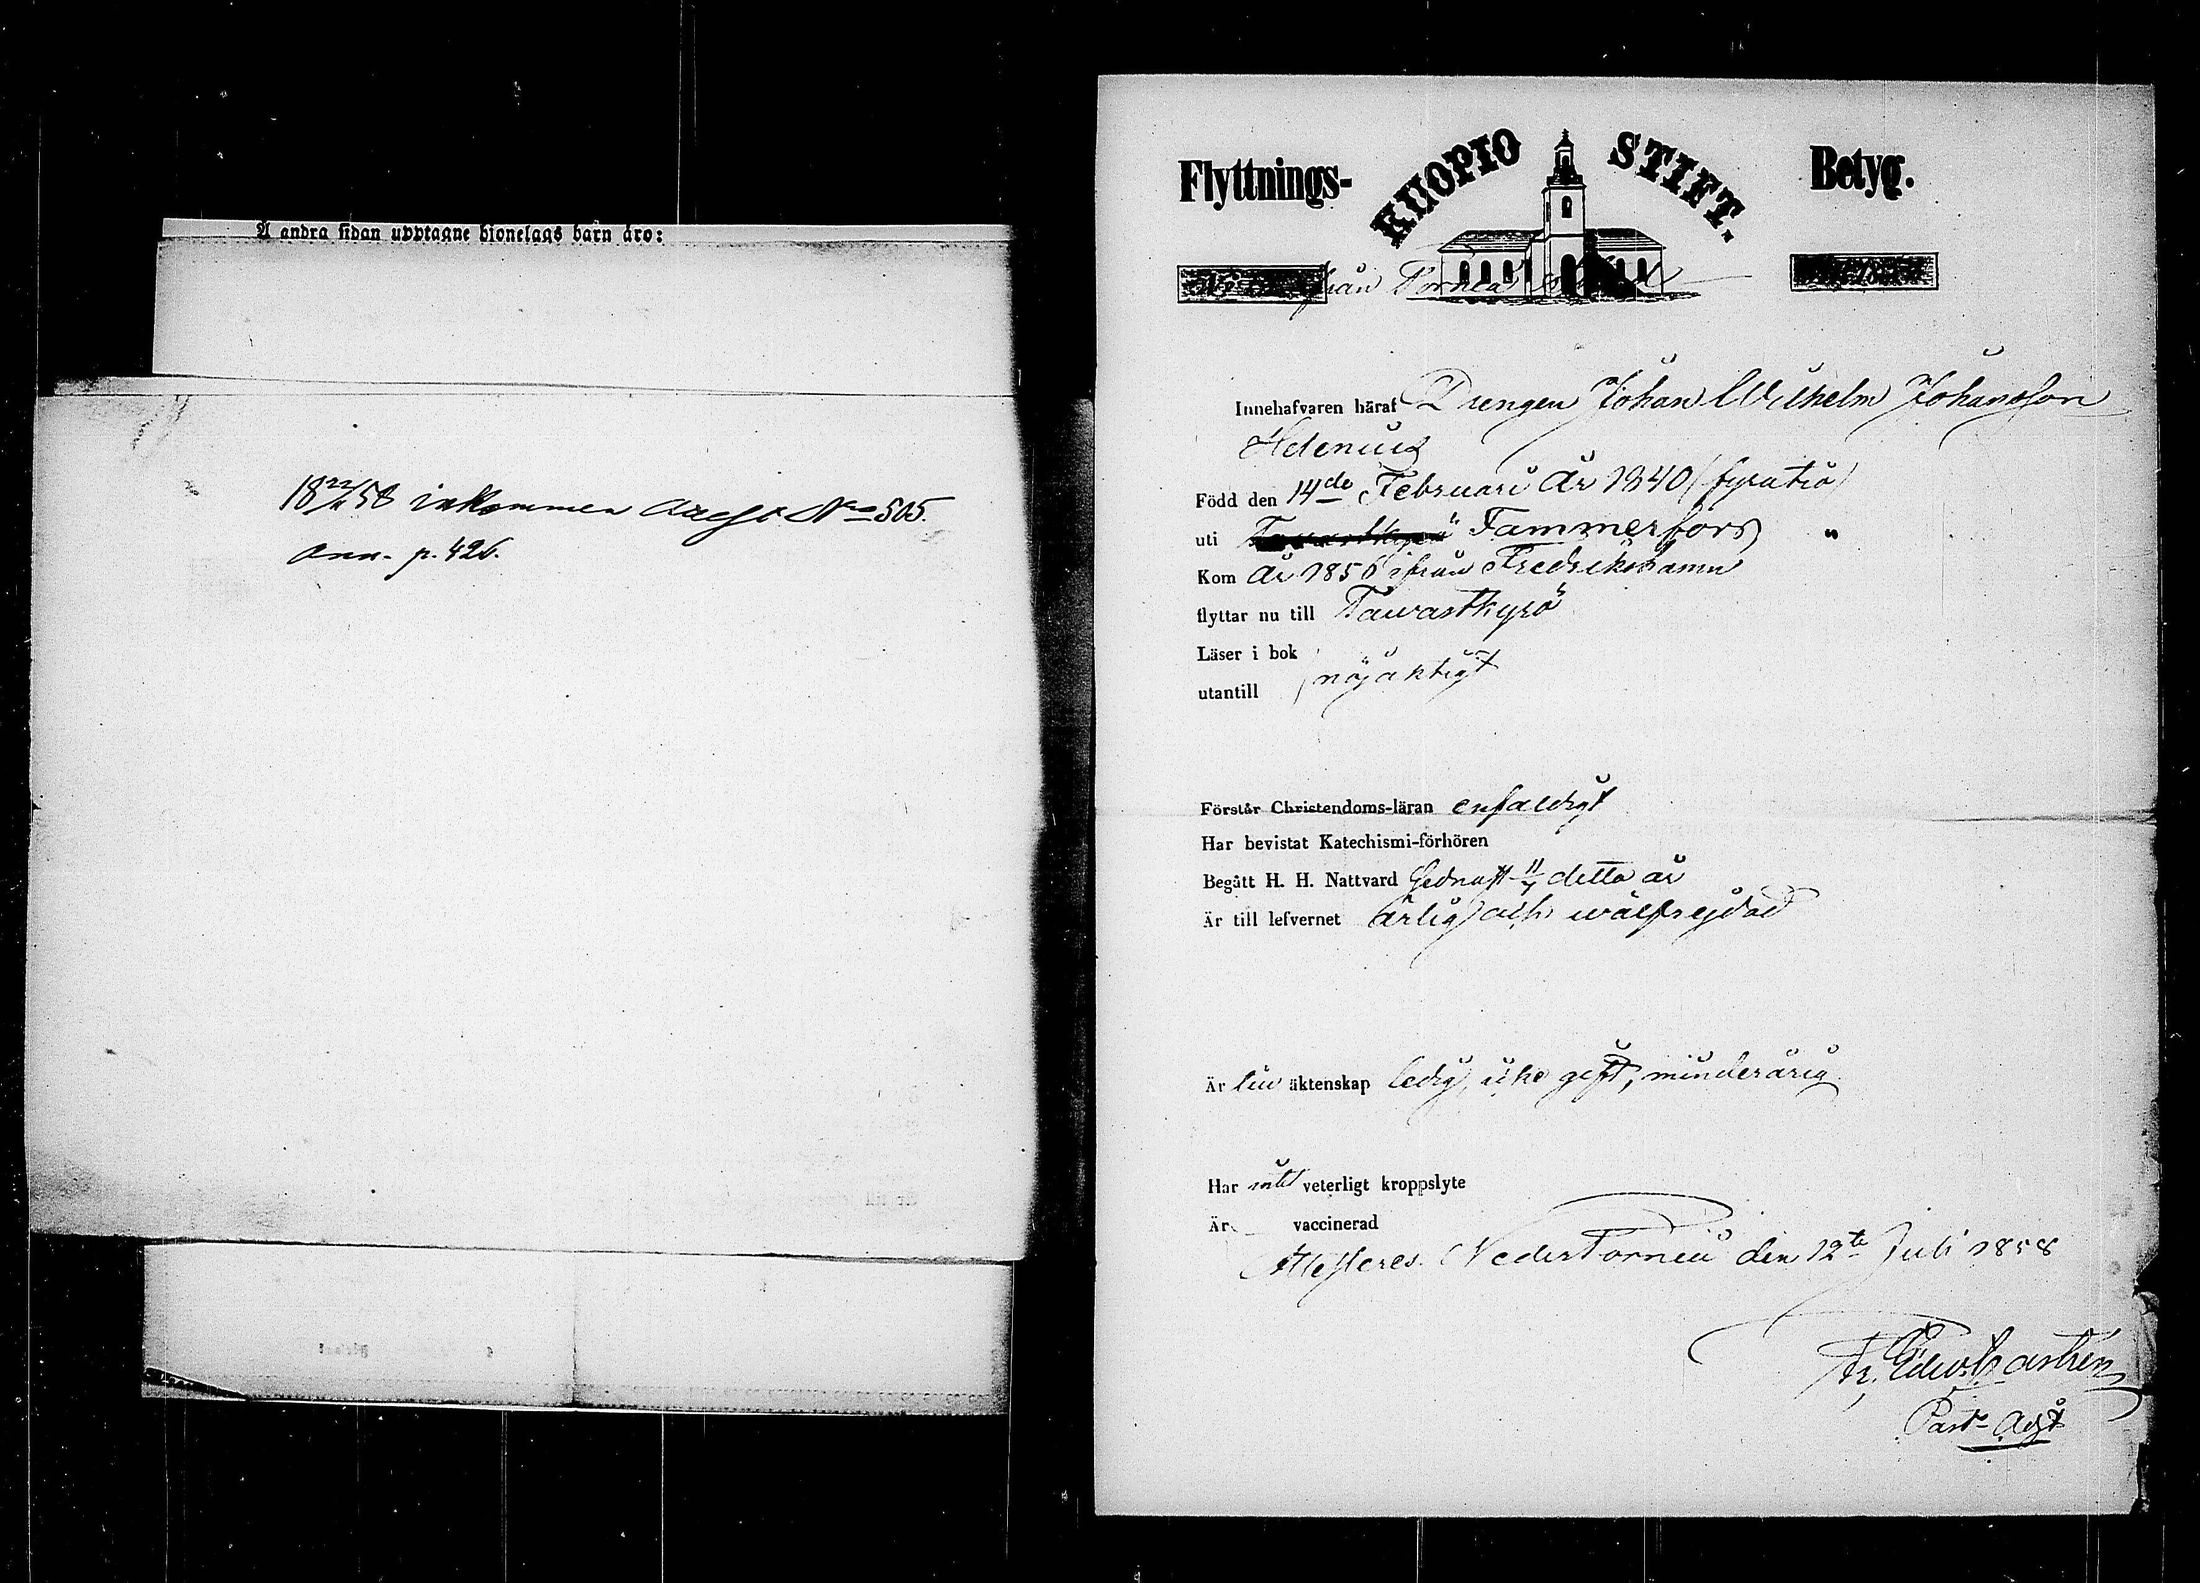 Å andra sidan upptagne hjonelags barn äro:
18 22/11 58 inkommen attest No 505.
ann. p. 426.
Flyttnings- KUOPIO STIFT. Betyg.
från Torneå
Innehafvaren häraf Drengen Johan Wilhelm Johansson
Helenius
Född den 14de Februari År 1840 (fyratio)
uti Tammerfors "
Kom År 1856 ifrån Fredrikshamn
flyttar nu till Tawastkyrö
Läser i bok
nöjaktigt
utantill
Förstår Christendoms-läran enfaldigt
Har bevistat Katechismi-förhören
Begått H. H. Nattvard sednast 11/7 detta år
Är till lefvernet ärlig och wälfrejdad
Är till äktenskap ledig, icke gift, minderårig
Har intet veterligt kroppslyte
Är vaccinerad
Attesteras. NederTorneå den 12te Juli 1858
Fr. Edw. Castrén
Past. Adj:t